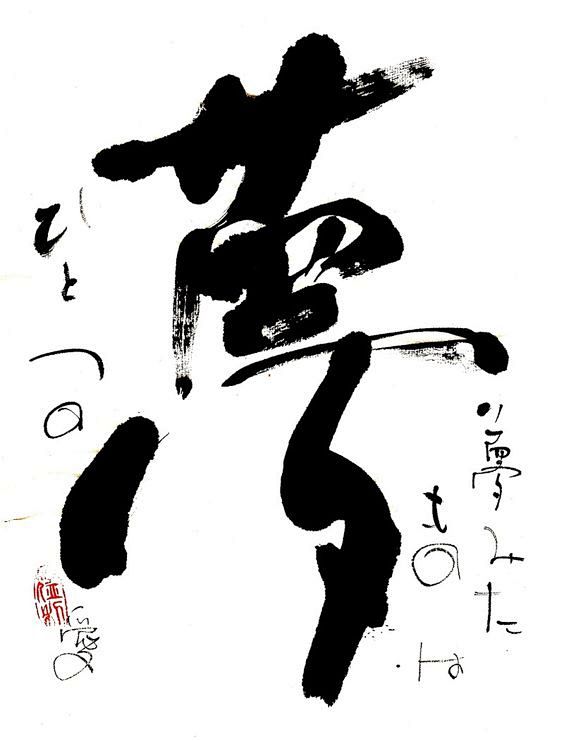 夢
夢みた
ものは
ひとつの
愛